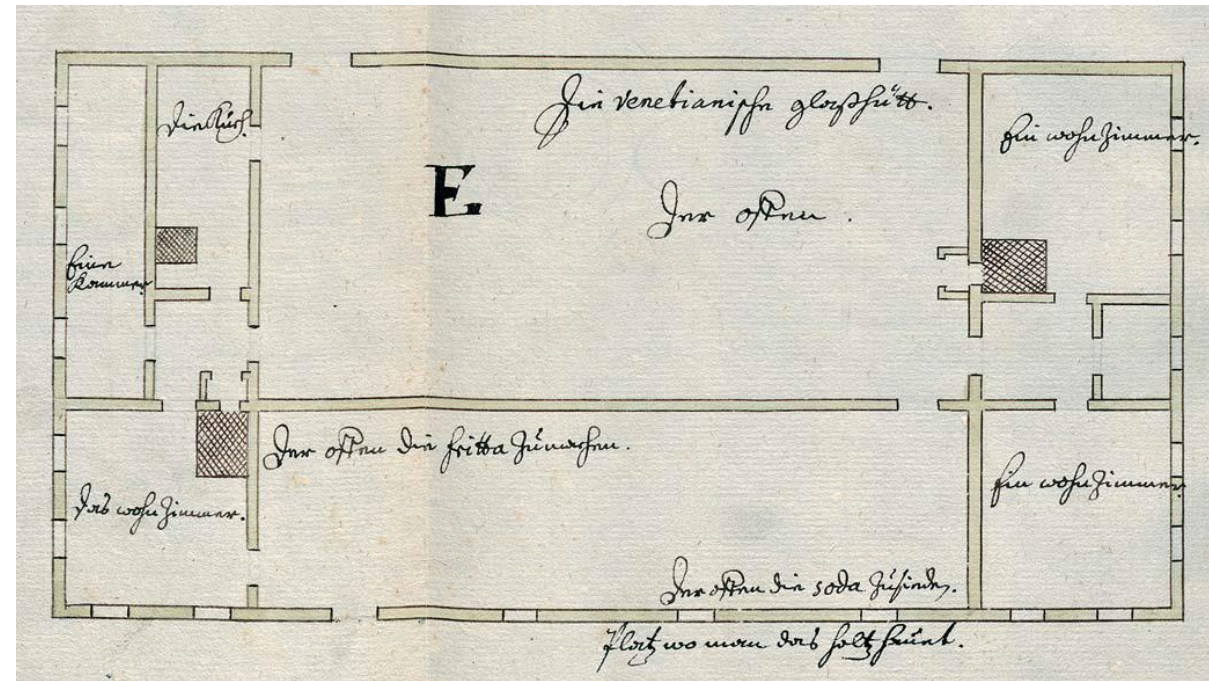 Die Venetianische glaßhütt.
Die Kuch.
Ein wohn Zimmer.
E
Der offen.
Eine
Kammer
Der offen die fritta Zumachen.
Das wohn Zimmer.
Ein wohn Zimmer
Der offen die soda Zusieden.
Platz wo man das holtz hauet.